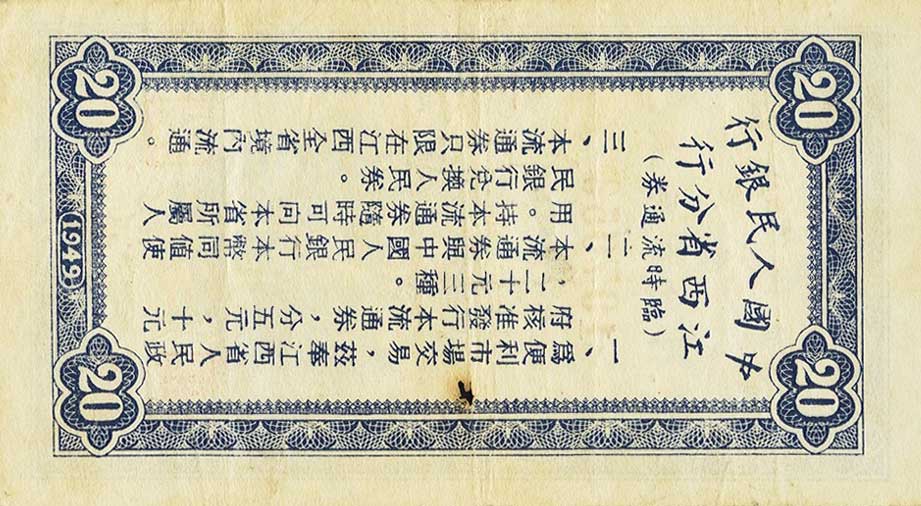 中國人民銀行
江西省分行
(臨時流通券)
一、為便利市場交易，茲奉江西省人民政
府核准發行本流通券，分五元，十元
，二十元三種。
二、本流通券與中國人民銀行本幣同值使
用。持本流通券隨時可向本省所屬人
民銀行兌換人民券。
三、本流通券只限在江西全省境內流通。
20
20
20
20
1949